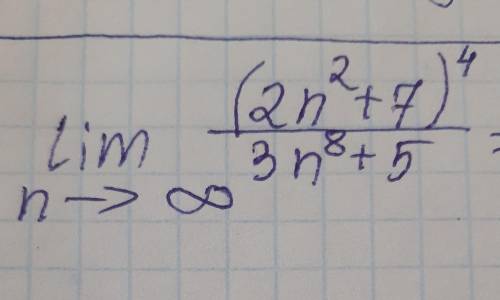 lim (2n²+7)⁴ / 3n⁸+5 =
n → ∞